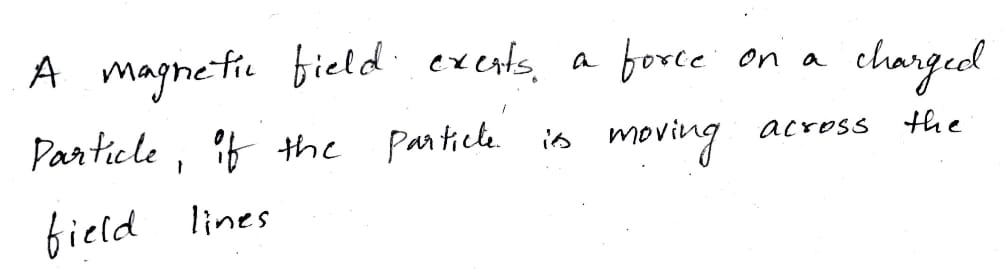 A magnetic field exerts a force on a charged
Particle, if the particle is moving across the
field lines